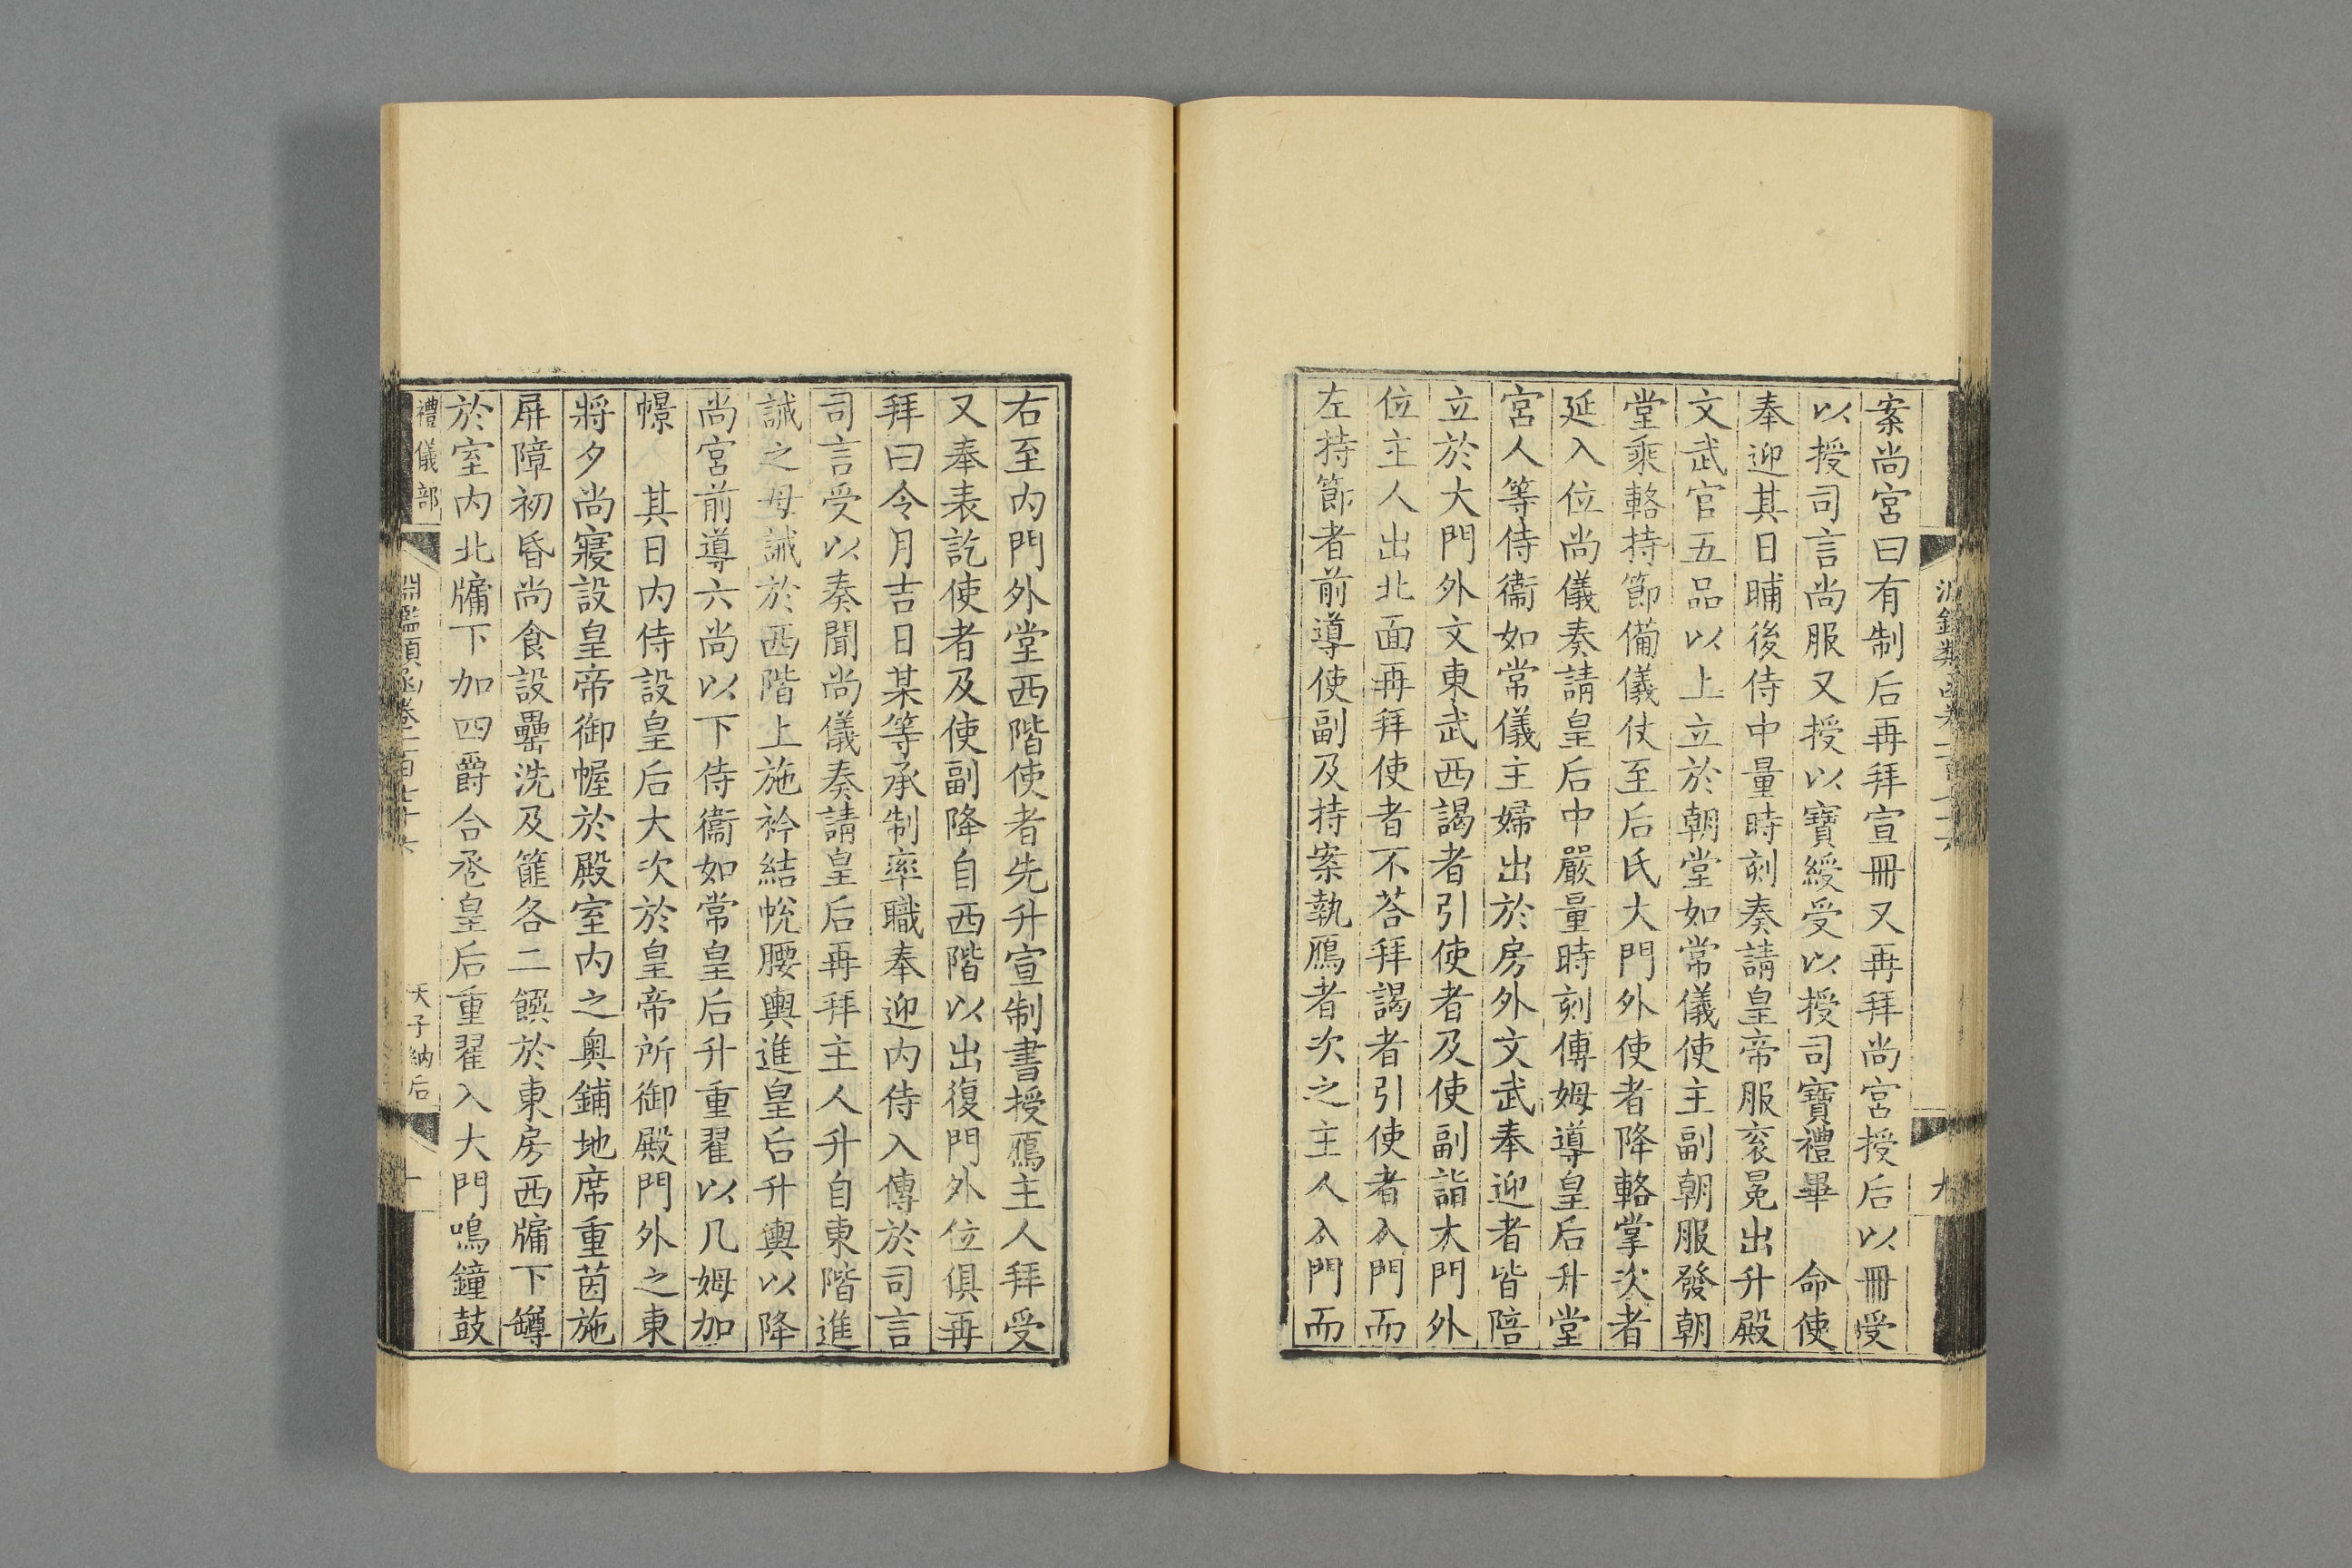 案尚宮曰有制后再拜宣冊又再拜尚宮授后以冊受
以授司言尚服又授以寶綬受以授司寶禮畢　命使
奉迎其日晡後侍中量時刻奏請皇帝服衮冕出升殿
文武官五品以上立於朝堂如常儀使主副朝服發朝
堂乘輅持節備儀仗至后氏大門外使者降輅掌次者
延入位尚儀奏請皇后中嚴量時刻傅姆導皇后升堂
宮人等侍衞如常儀主婦出於房外文武奉迎者皆陪
立於大門外文東武西謁者引使者及使副詣大門外
位主人出北面再拜使者不荅拜謁者引使者入門而
左持節者前導使副及持案執鴈者次之主人入門而
右至内門外堂西階使者先升宣制書授鴈主人拜受
又奉表訖使者及使副降自西階以出復門外位俱再
拜曰令月吉日某等承制率職奉迎内侍入傳於司言
司言受以奏聞尚儀奏請皇后再拜主人升自東階進
誡之母誡於西階上施衿結帨腰輿進皇后升輿以降
尚宮前導六尚以下侍衞如常皇后升重翟以几姆加
幜　其日内侍設皇后大次於皇帝所御殿門外之東
將夕尚寢設皇帝御幄於殿室内之奥鋪地席重茵施
屏障初昏尚食設罍洗及篚各二饌於東房西牖下罇
於室内北牖下加四爵合卺皇后重翟入大門鳴鐘鼓
禮儀部
淵鑑類函卷一百七十六
天子納后
十